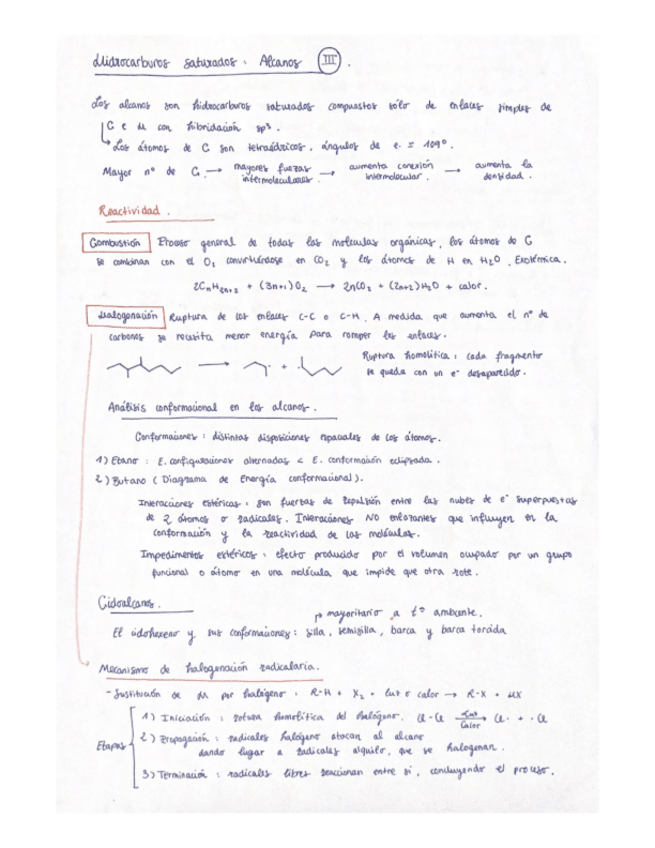 Hidrocarburos saturados: Alcanos III.
Los alcanos son hidrocarburos saturados compuestos sólo de enlaces simples de
C e H con hibridación sp³.
Los átomos de C son tetraédricos, ángulos de e. = 109°.
Mayor nº de C. → mayores fuerzas intermoleculares. → aumenta conexión intermolecular. → aumenta la densidad.
Reactividad.
Combustión Proceso general de todas las moleculas orgánicas, los átomos de C
se combinan con el O₂ convirtiéndose en CO₂ y los átomos de H en H₂O. Exotérmica.
2CnH2n+2 + (3n+1)O₂ → 2nCO₂ + (2n+2)H₂O + calor.
Halogenación Ruptura de los enlaces C-C o C-H. A medida que aumenta el nº de
carbonos se necesita menor energía para romper los enlaces.
Ruptura homolítica: cada fragmento
se queda con un e⁻ desapareado.
Análisis conformacional en los alcanos.
Conformaciones: distintas disposiciones espaciales de los átomos.
1) Etano: E. configuraciones alternadas < E. conformación eclipsada.
2) Butano (Diagrama de Energía conformacional).
Interacciones estéricas: son fuerzas de repulsión entre las nubes de e⁻ superpuestas
de 2 átomos o radicales. Interacciones NO enlazantes que influyen en la
conformación y la reactividad de las moléculas.
Impedimentos estéricos: efecto producido por el volumen ocupado por un grupo
funcional o átomo en una molécula que impide que otra rote.
Cicloalcanos.
mayoritario a tº ambiente.
El ciclohexeno y sus conformaciones: silla, semisilla, barca y barca torcida
Mecanismo de halogenación radicalaria.
- Sustitución de H por halógeno: R-H + X₂ + luz o calor → R-X + HX
Etapas
1) Iniciación: rotura homolítica del halógeno. Cl-Cl luz calor → Cl· + ·Cl
2) Propagación: radicales halógeno atacan al alcano
dando lugar a radicales alquilo, que se halogenan.
3) Terminación: radicales libres reaccionan entre sí, concluyendo el proceso.